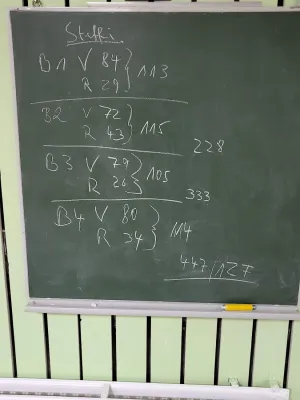 Steffi
B1 V 84 } 113
R 29
B2 V 72 } 115
R 43
228
B3 V 79 } 105
R 26
333
B4 V 80 } 114
R 34
447/127